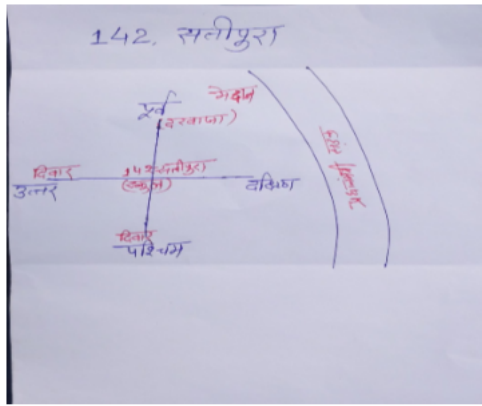 142. सतीपुरा
पूर्व
(दरवाजा)
मैदान
दिवार
उत्तर
142 सतीपुरा
(स्कूल)
दक्षिण
दिवार
पश्चिम